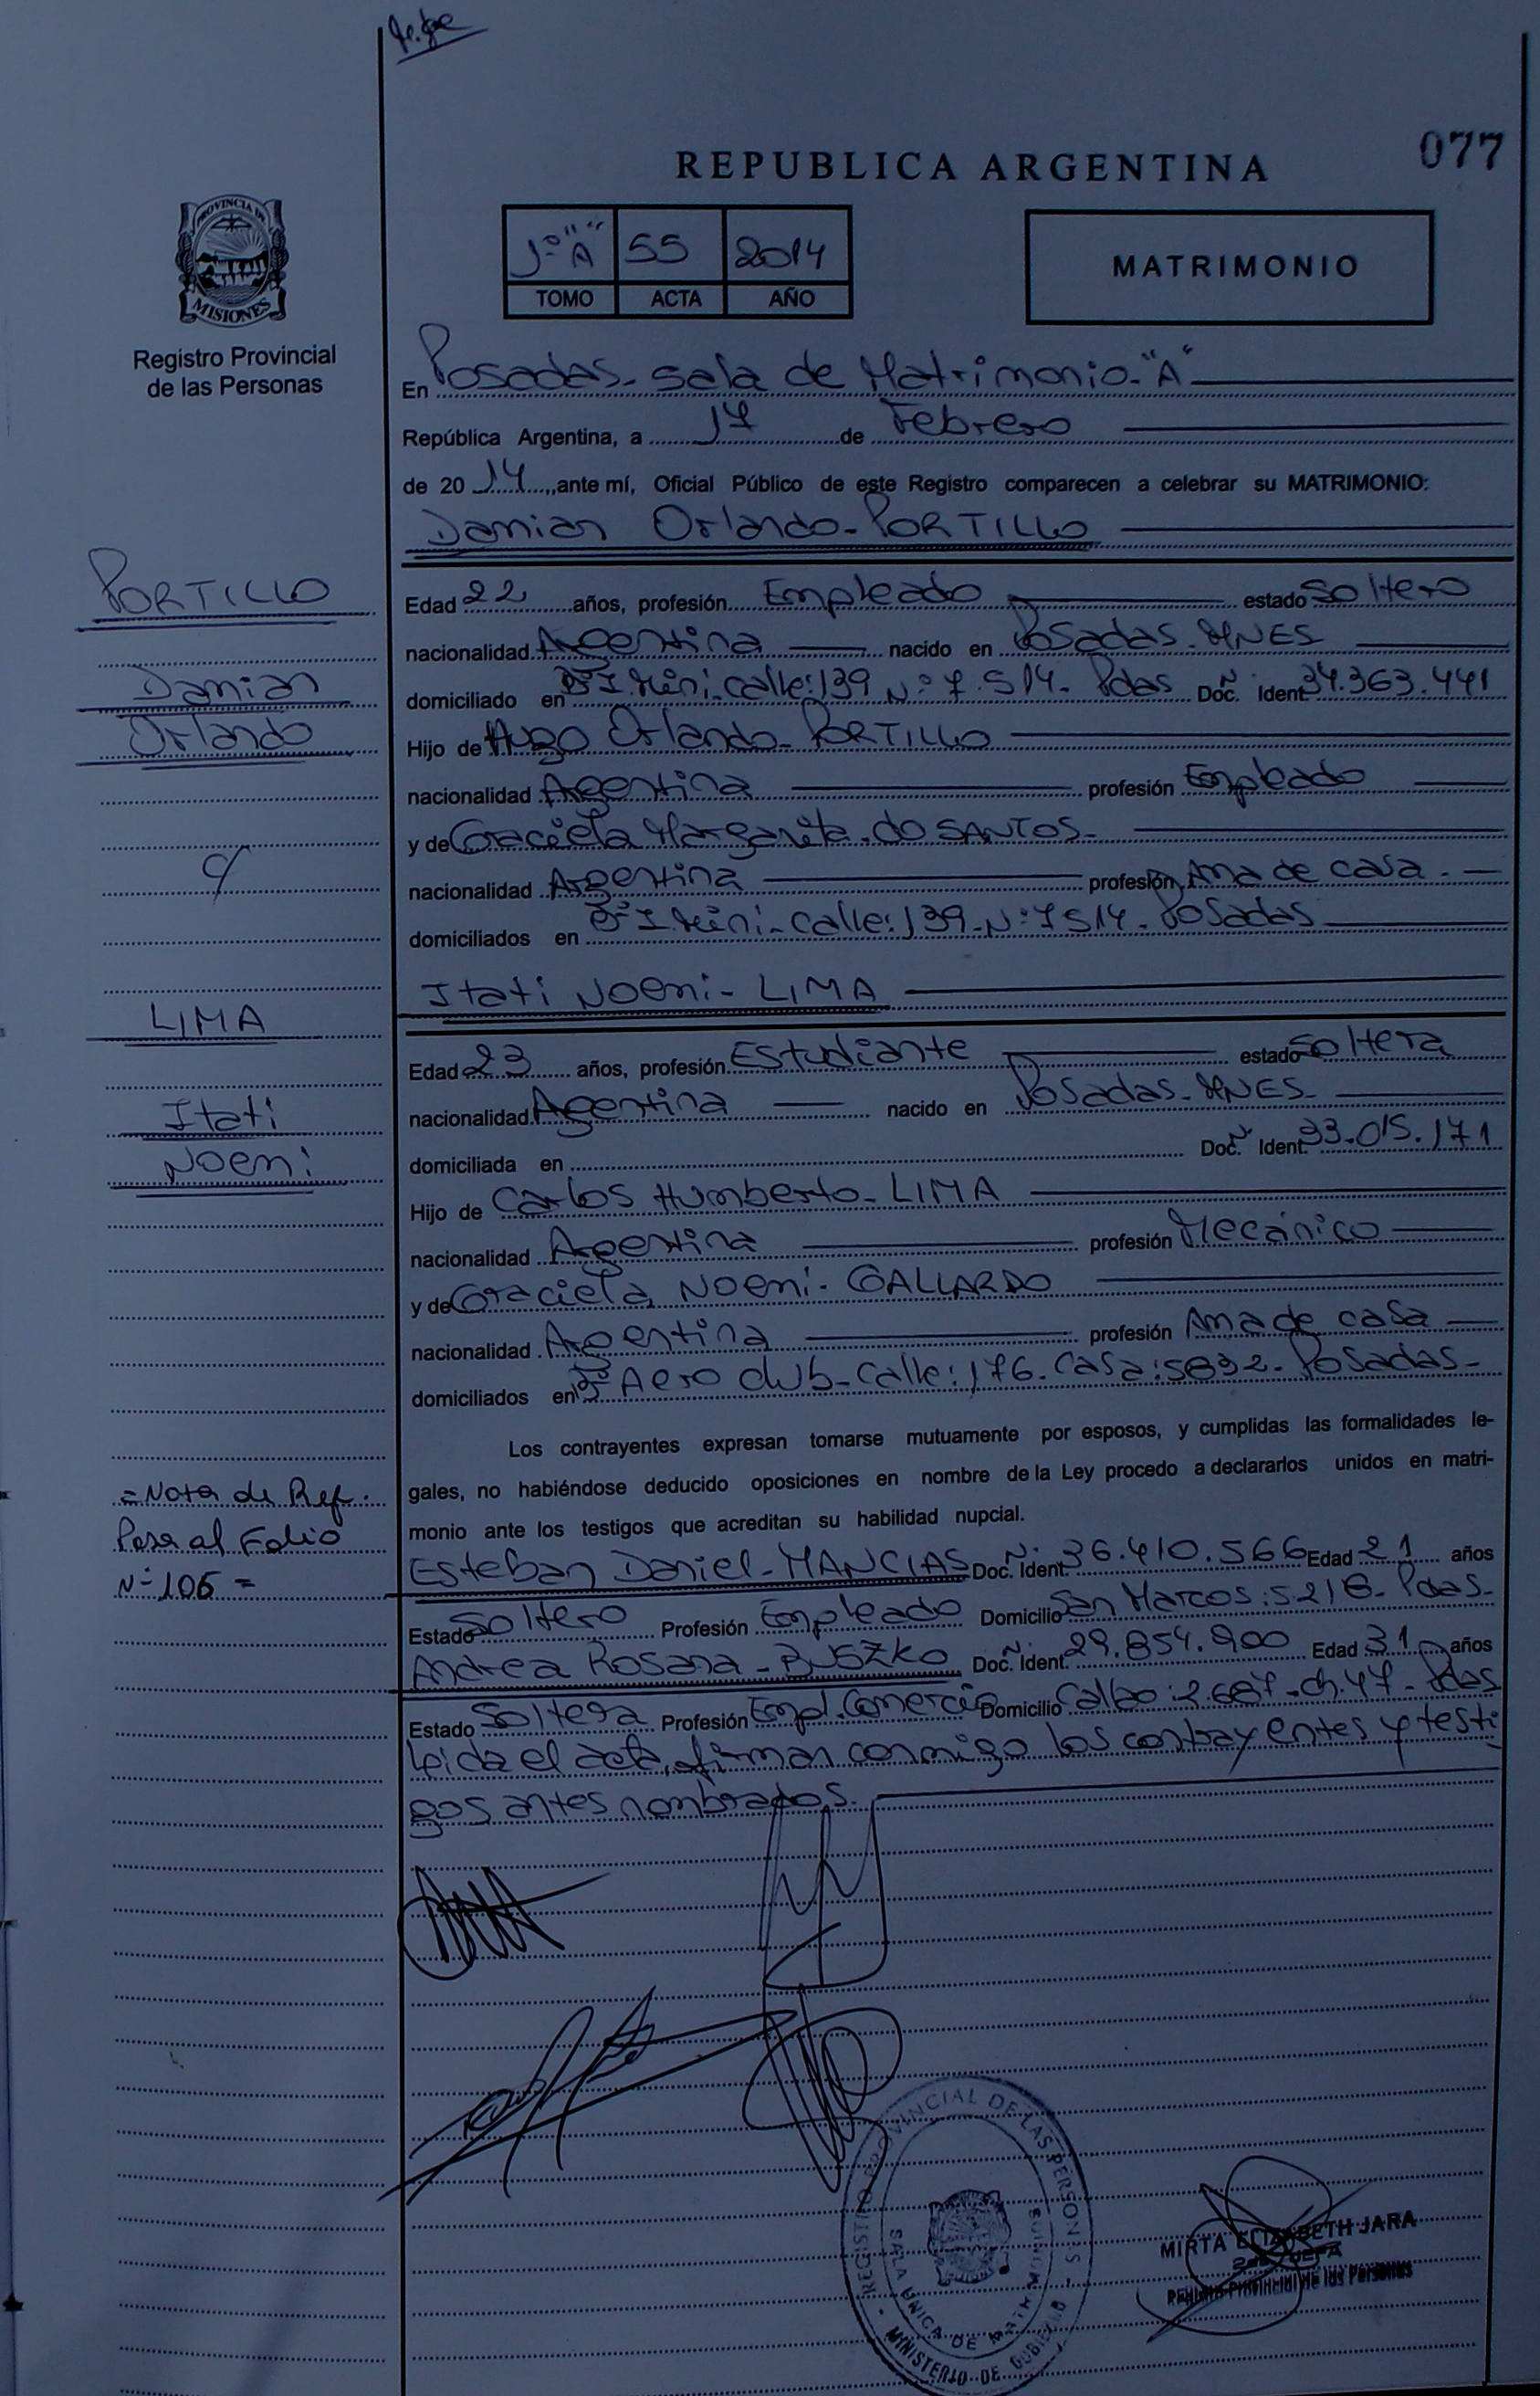 077
REPUBLICA ARGENTINA
PROVINCIA DE
MISIONES
Registro Provincial
de las Personas
1º "A" 55 2014
TOMO ACTA AÑO
MATRIMONIO
En Posadas - sala de Matrimonio - "A"
República Argentina, a 17 de Febrero
de 20 14, ante mí, Oficial Público de este Registro comparecen a celebrar su MATRIMONIO:
Damian Orlando - PORTILLO
PORTILLO
Damian
Orlando
Edad 22 años, profesión Empleado estado soltero
nacionalidad Argentina nacido en Posadas - MNES
domiciliado en Bº I. Mini - calle: 139 Nº: 7.514 - Pdas Doc. Nº Ident. 34.363.441
Hijo de Hugo Orlando - PORTILLO
nacionalidad Argentina profesión Empleado
y de Graciela Margarita - do SANTOS -
c/
nacionalidad Argentina profesión Ama de casa . -
domiciliados en Bº I. Mini - Calle: 139 - Nº: 7514 - Posadas
Itati Noemi - LIMA
LIMA
Itati
Noemi
Edad 23 años, profesión Estudiante estado soltera
nacionalidad Argentina nacido en Posadas - MNES -
domiciliada en Doc. Nº Ident. 33.015.171
Hijo de Carlos Humberto - LIMA
nacionalidad Argentina profesión Mecánico
y de Graciela Noemi - GALLARDO
nacionalidad Argentina profesión Ama de casa
domiciliados en Bº Aero club - Calle: 176 - Casa: 5832 - Posadas -
Los contrayentes expresan tomarse mutuamente por esposos, y cumplidas las formalidades le-
gales, no habiéndose deducido oposiciones en nombre de la Ley procedo a declararlos unidos en matri-
monio ante los testigos que acreditan su habilidad nupcial.
= Nota de Ref.
Pasa al Folio
Nº 105 =
Esteban Daniel - MANCIAS Doc. Nº Ident. 36.410.566 Edad 21 años
Estado Soltero Profesión Empleado Domicilio San Marcos: 5218 - Pdas -
Andrea Rosana - BUSZKO Doc. Nº Ident. 29.854.900 Edad 31 años
Estado Soltera Profesión Empl. Comercio Domicilio Callao: 2.687 - ch. 47 - Pdas
Leida el acta, firman conmigo los contrayentes y testi
gos antes nombrados.
REGISTRO PROVINCIAL DE LAS PERSONAS
SALA UNICA DE
MINISTERIO DE GOBIERNO
MIRTA ELIZABETH JARA
2da. JEFA
Registro Provincial de las Personas